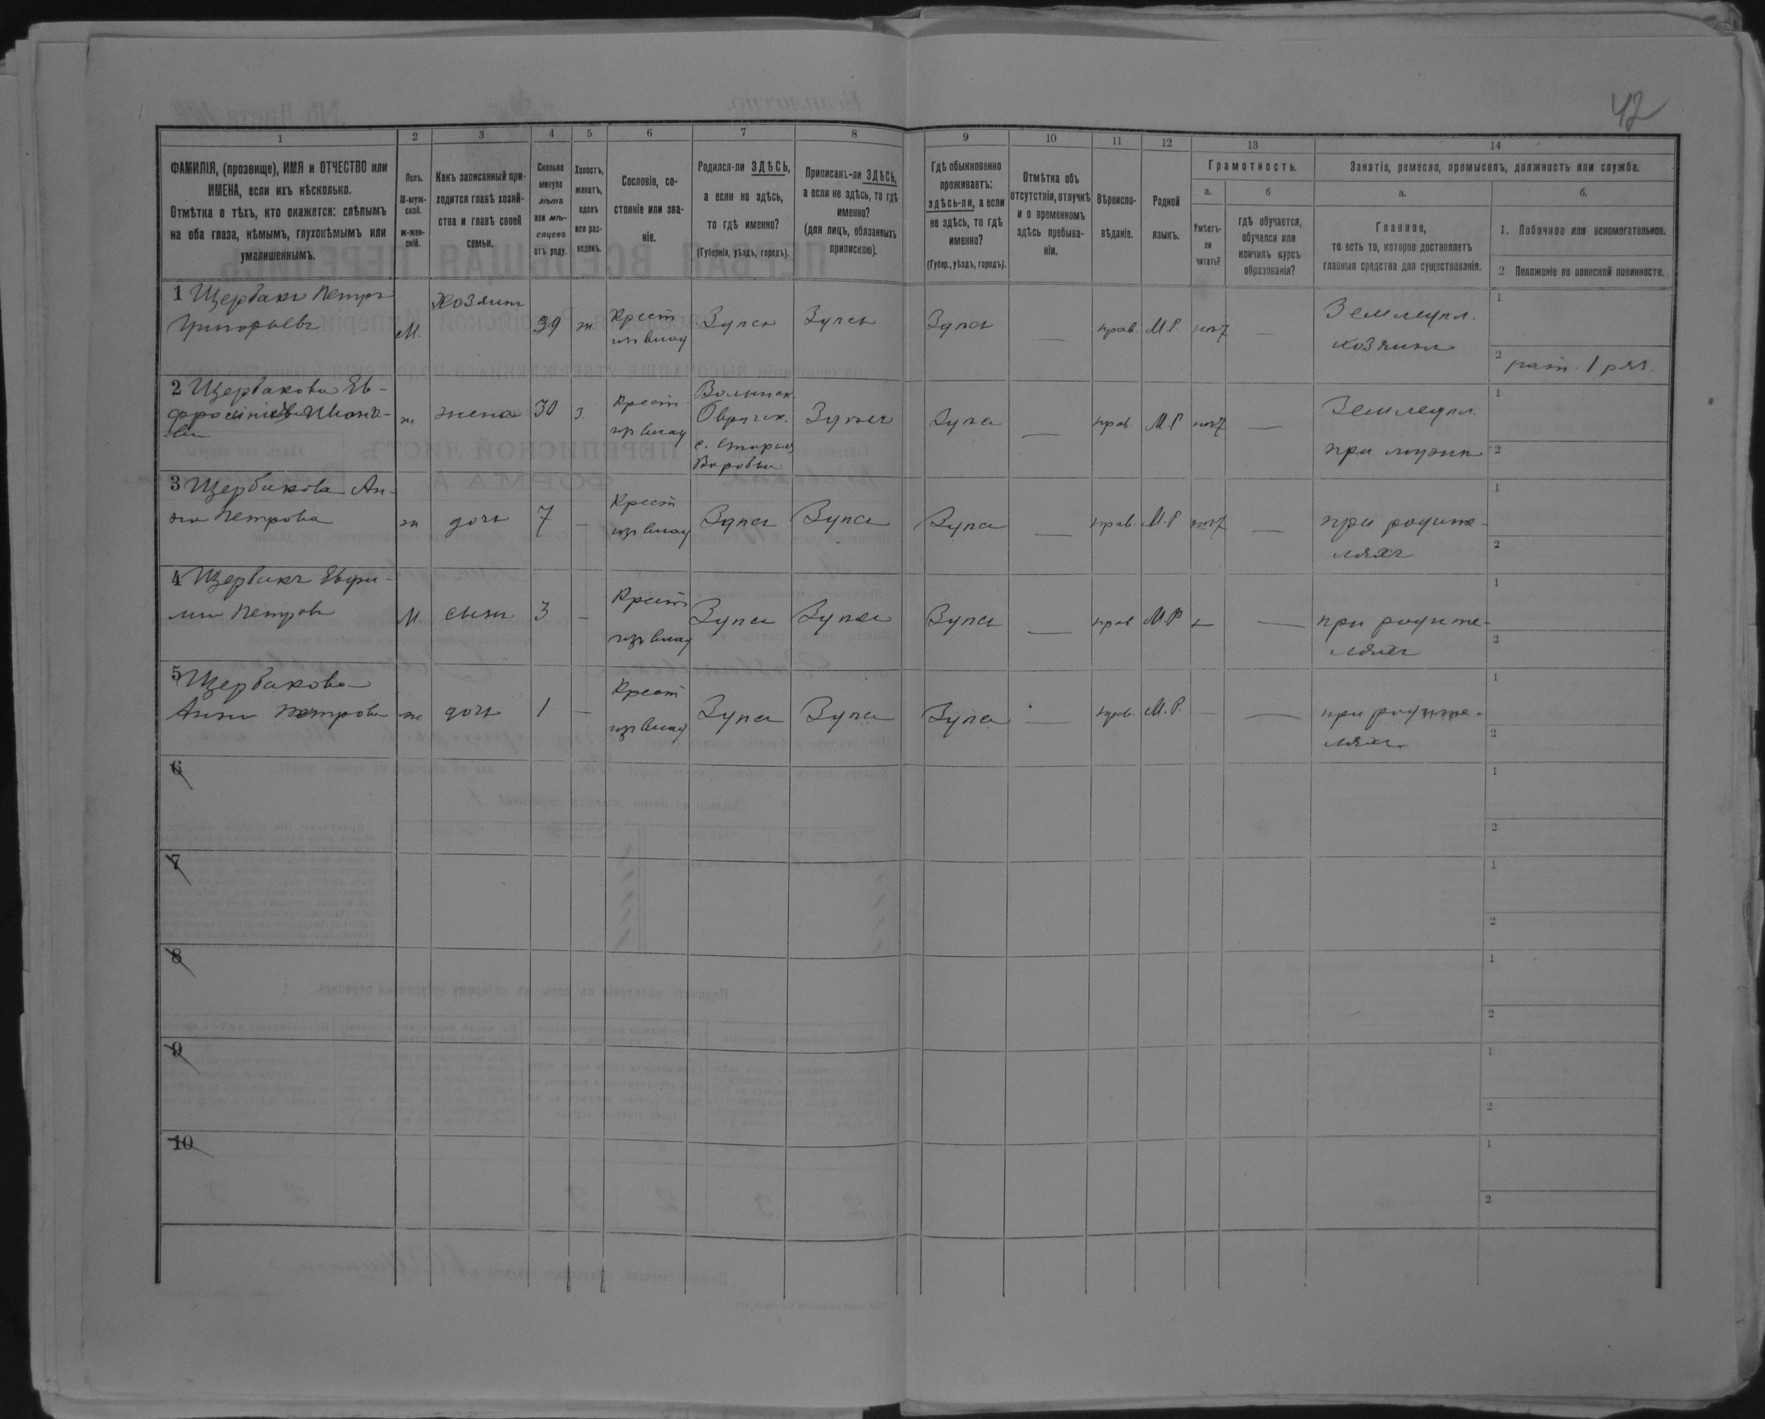 42
1
2
3
4
5
6
7
8
9
10
11
12
13
14
ФАМИЛІЯ, (прозвище), ИМЯ и ОТЧЕСТВО или
ИМЕНА, если ихъ нѣсколько.
Отмѣтка о тѣхъ, кто окажется: слѣпымъ
на оба глаза, нѣмымъ, глухонѣмымъ или
умалишеннымъ.
Полъ.
М-муж-
ской.
ж-жен-
скій.
Какъ записанный при-
ходится главѣ хозяй-
ства и главѣ своей
семьи.
Сколько
минуло
лѣтъ
или мѣ-
сяцевъ
отъ роду.
Холостъ,
женатъ,
вдовъ
или раз-
веденъ.
Сословіе, со-
стояніе или зва-
ніе.
Родился-ли ЗДѢСЬ,
а если не здѣсь,
то гдѣ именно?
(Губернія, уѣздъ, городъ).
Приписанъ-ли ЗДѢСЬ,
а если не здѣсь, то гдѣ
именно?
(для лицъ, обязанныхъ
припискою).
Гдѣ обыкновенно
проживаетъ:
здѣсь-ли, а если
не здѣсь, то гдѣ
именно?
(Губер., уѣздъ, городъ).
Отмѣтка объ
отсутствіи, отлучкѣ
и о временномъ
здѣсь пребыва-
ніи.
Вѣроиспо-
вѣданіе.
Родной
языкъ.
Грамотность.
а.
Умѣетъ-
ли
читать?
б
гдѣ обучается,
обучался или
кончилъ курсъ
образованія?
Занятія, ремесло, промыселъ, должность или служба.
а.
Главное,
то есть то, которое доставляетъ
главныя средства для существованія.
б.
1. Побочное или вспомогательное.
2 Положеніе по воинской повинности.
1 Щербакъ Петръ
Григорьевъ
М.
хозяинъ
39
ж
Крест
изъ влад
Здѣсь
Здѣсь
Здѣсь
—
прав.
М.Р.
нѣт
—
Земледѣл.
хозяинъ
1
2
рат. 1 раз.
2 Щербакова Ев-
ж
жена
30
з.
Крест
изъ влад
Волынск.
Овручск.
Здѣсь
Здѣсь
—
прав.
М.Р
нѣт
—
Земледѣл.
при мужѣ
1
2
3 Щербакова Ан-
на Петрова
ж
дочь
7
—
Крест
изъ влад
Здѣсь
Здѣсь
Здѣсь
—
прав.
М.Р
нѣт
—
при родите-
ляхъ
1
2
4 Щербакъ Евфи-
мій Петровъ
М.
сынъ
3
—
Крест
изъ влад
Здѣсь
Здѣсь
Здѣсь
—
прав
М.Р
—
—
при родите-
ляхъ
1
2
5 Щербакова
Анна Петрова
ж
дочь
1
—
Крест
изъ влад
Здѣсь
Здѣсь
Здѣсь
—
прав.
М.Р.
—
—
при родите-
ляхъ
1
2
6
1
2
7
1
2
8
1
2
9
1
2
10
1
2